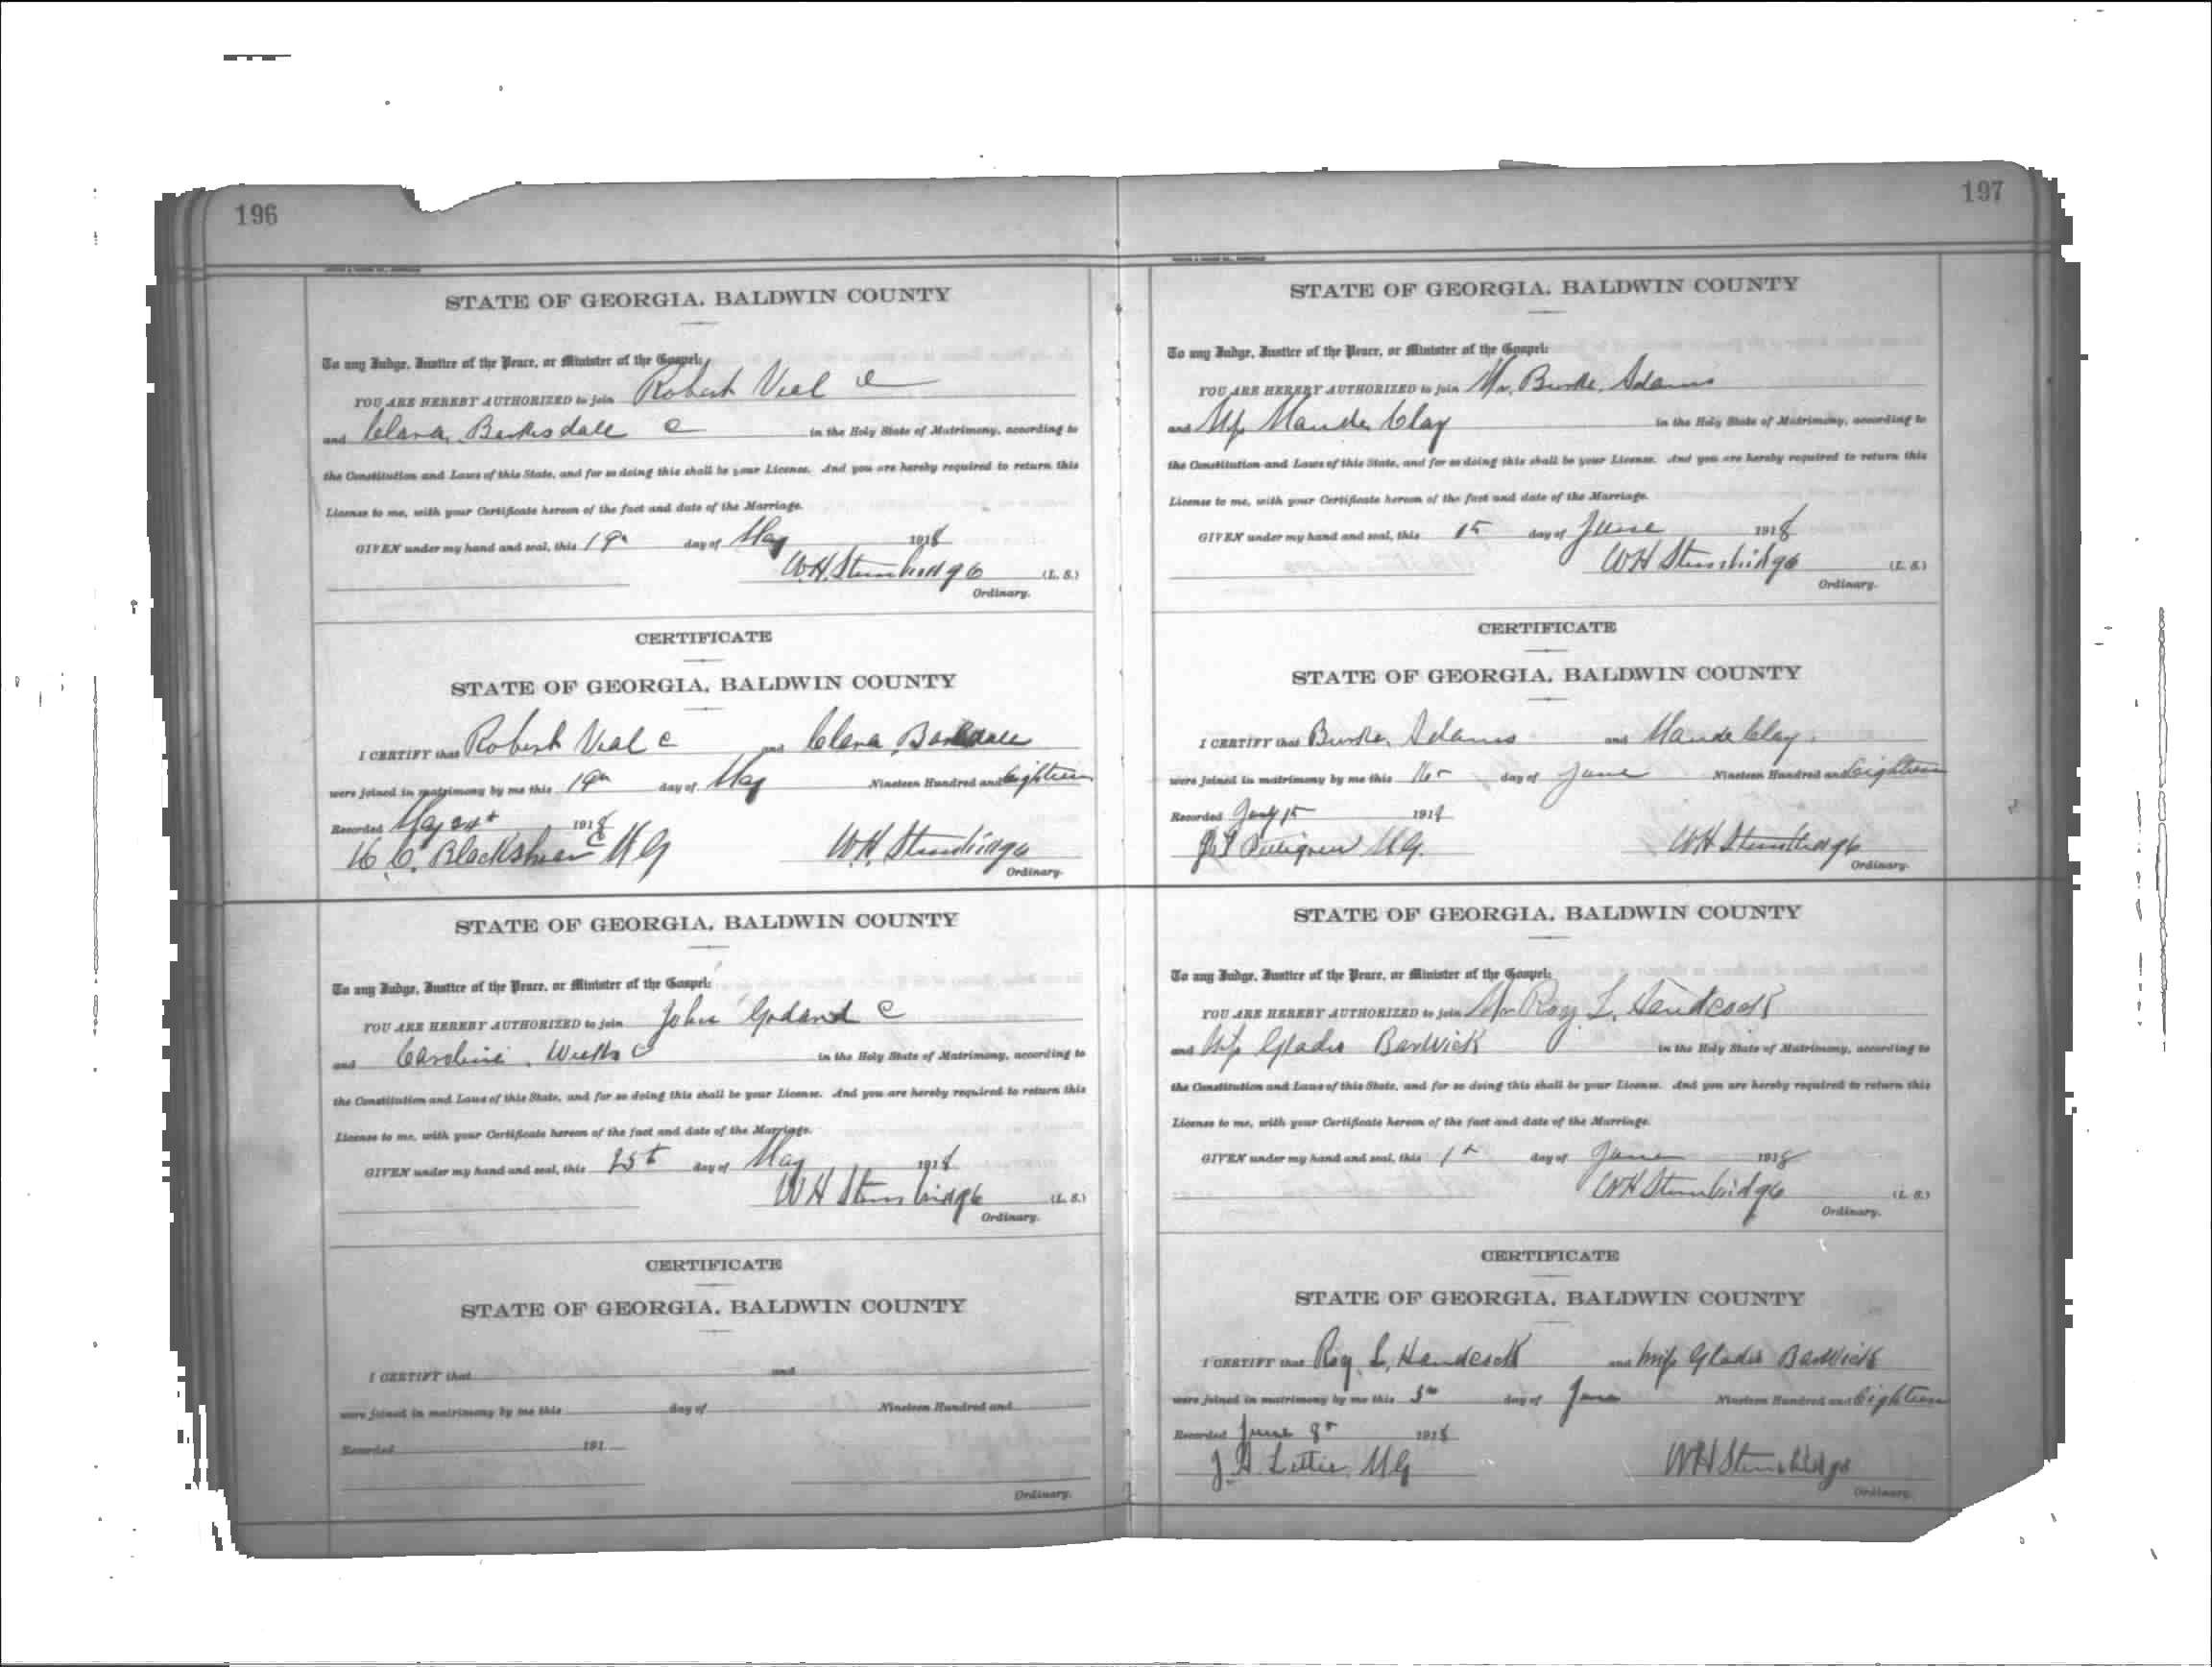 196
STATE OF GEORGIA. BALDWIN COUNTY
To any Judge, Justice of the Peace, or Minister of the Gospel:
YOU ARE HEREBY AUTHORIZED to join Robert Veal C
and Clara Barksdale C in the Holy State of Matrimony, according to
the Constitution and Laws of this State, and for so doing this shall be your License. And you are hereby required to return this
License to me, with your Certificate hereon of the fact and date of the Marriage.
GIVEN under my hand and seal, this 19th day of May 1918
W.H. Stembridge (L. S.)
Ordinary.
CERTIFICATE
STATE OF GEORGIA. BALDWIN COUNTY
I CERTIFY that Robert Veal C and Clara Barksdale
were joined in matrimony by me this 19th day of May Nineteen Hundred and Eighteen
Recorded May 24t 1918
Blackshear C M G W.H. Stembridge
Ordinary.
STATE OF GEORGIA. BALDWIN COUNTY
To any Judge, Justice of the Peace, or Minister of the Gospel:
YOU ARE HEREBY AUTHORIZED to join John C
and Caroline C in the Holy State of Matrimony, according to
the Constitution and Laws of this State, and for so doing this shall be your License. And you are hereby required to return this
License to me, with your Certificate hereon of the fact and date of the Marriage.
GIVEN under my hand and seal, this 25t day of May 1918
W H Stembridge (L. S.)
Ordinary.
CERTIFICATE
STATE OF GEORGIA. BALDWIN COUNTY
I CERTIFY that and
were joined in matrimony by me this day of Nineteen Hundred and
Recorded 191
Ordinary.
197
STATE OF GEORGIA. BALDWIN COUNTY
To any Judge, Justice of the Peace, or Minister of the Gospel:
YOU ARE HEREBY AUTHORIZED to join Mr. Burke Adams
and Miss Maude Clay in the Holy State of Matrimony, according to
the Constitution and Laws of this State, and for so doing this shall be your License. And you are hereby required to return this
License to me, with your Certificate hereon of the fact and date of the Marriage.
GIVEN under my hand and seal, this 15 day of June 1918
W H Stembridge (L. S.)
Ordinary.
CERTIFICATE
STATE OF GEORGIA. BALDWIN COUNTY
I CERTIFY that Burke Adams and Maude Clay
were joined in matrimony by me this 16 day of June Nineteen Hundred and Eighteen
Recorded 15 1918
M.G. W H Stembridge
Ordinary.
STATE OF GEORGIA. BALDWIN COUNTY
To any Judge, Justice of the Peace, or Minister of the Gospel:
YOU ARE HEREBY AUTHORIZED to join Mr Roy L. Handcock
and Miss Gladis Barwick in the Holy State of Matrimony, according to
the Constitution and Laws of this State, and for so doing this shall be your License. And you are hereby required to return this
License to me, with your Certificate hereon of the fact and date of the Marriage.
GIVEN under my hand and seal, this 1st day of June 1918
W H Stembridge (L. S.)
Ordinary.
CERTIFICATE
STATE OF GEORGIA. BALDWIN COUNTY
I CERTIFY that Roy L. Handcock and Miss Gladis Barwick
were joined in matrimony by me this day of June Nineteen Hundred and Eighteen
Recorded June 8 1918
M G W H Stembridge
Ordinary.